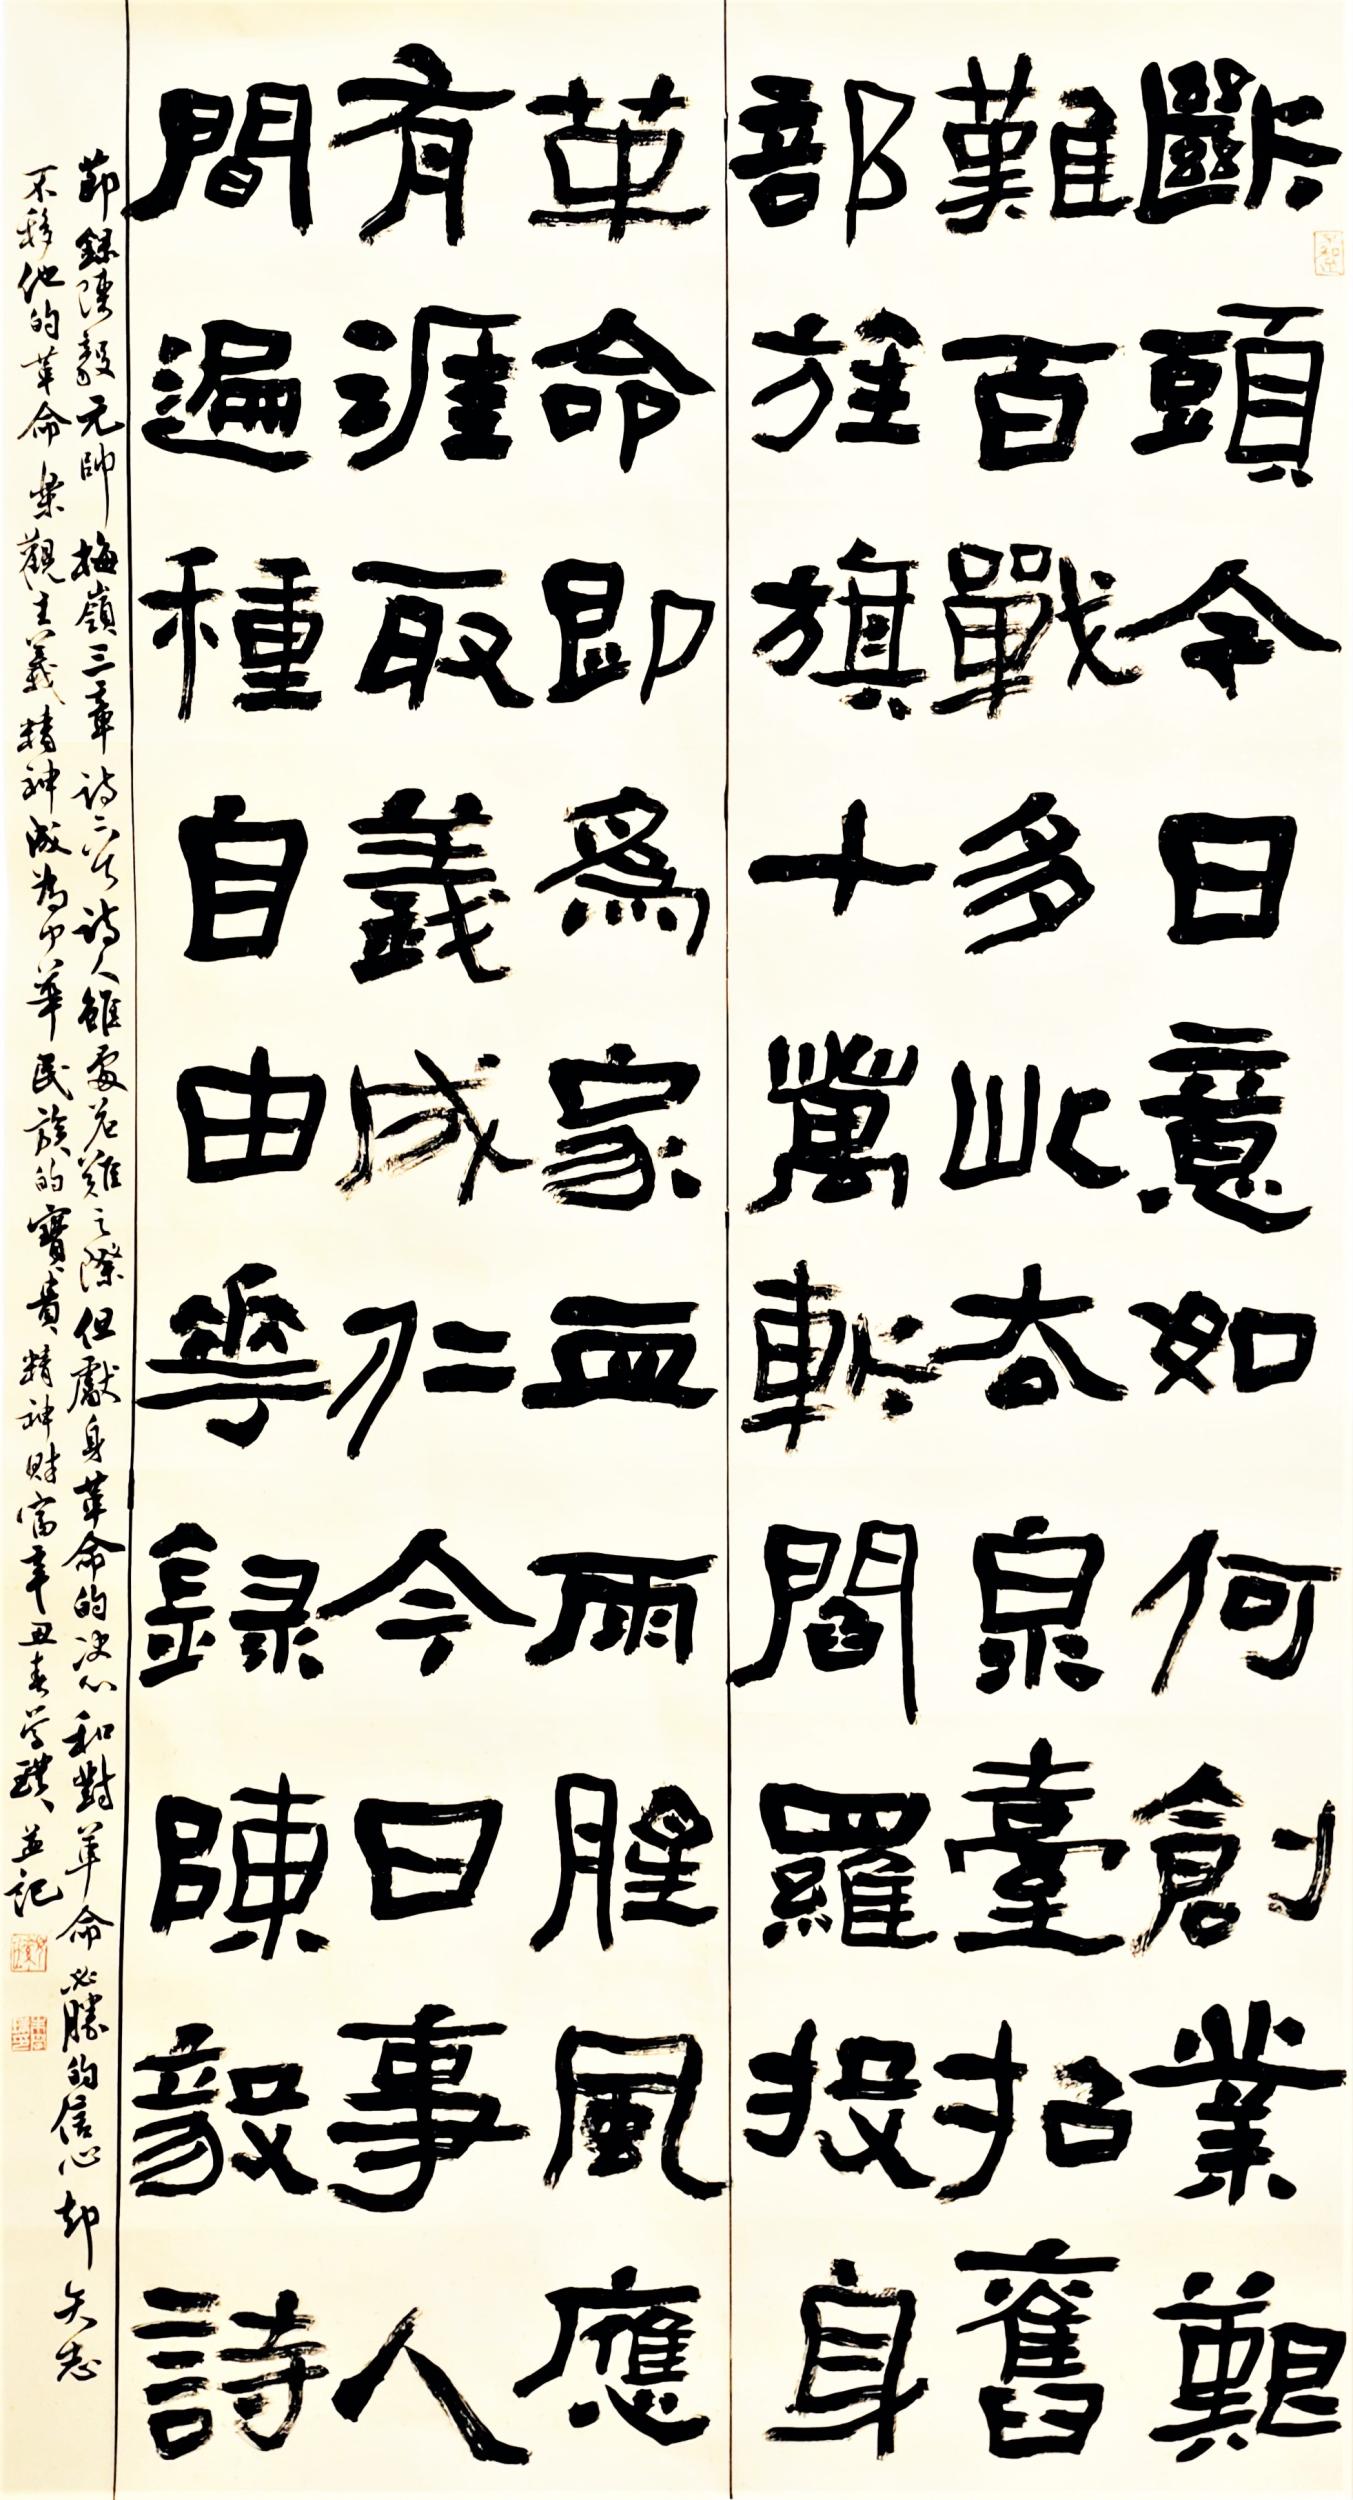 斷頭今日意如何創業艱
難百戰多此去泉臺招舊
部旌旗十萬斬閻羅投身
革命即爲家血雨腥風應
有涯取義成仁今日事人
間遍種自由華錄陳毅詩
節錄陳毅元帥梅嶺三章詩二首詩人雖處危難之際但獻身革命的决心和對革命必勝的信心却矢志
不移他的革命樂觀主義精神成為中華民族的寶貴精神財富辛丑春並記